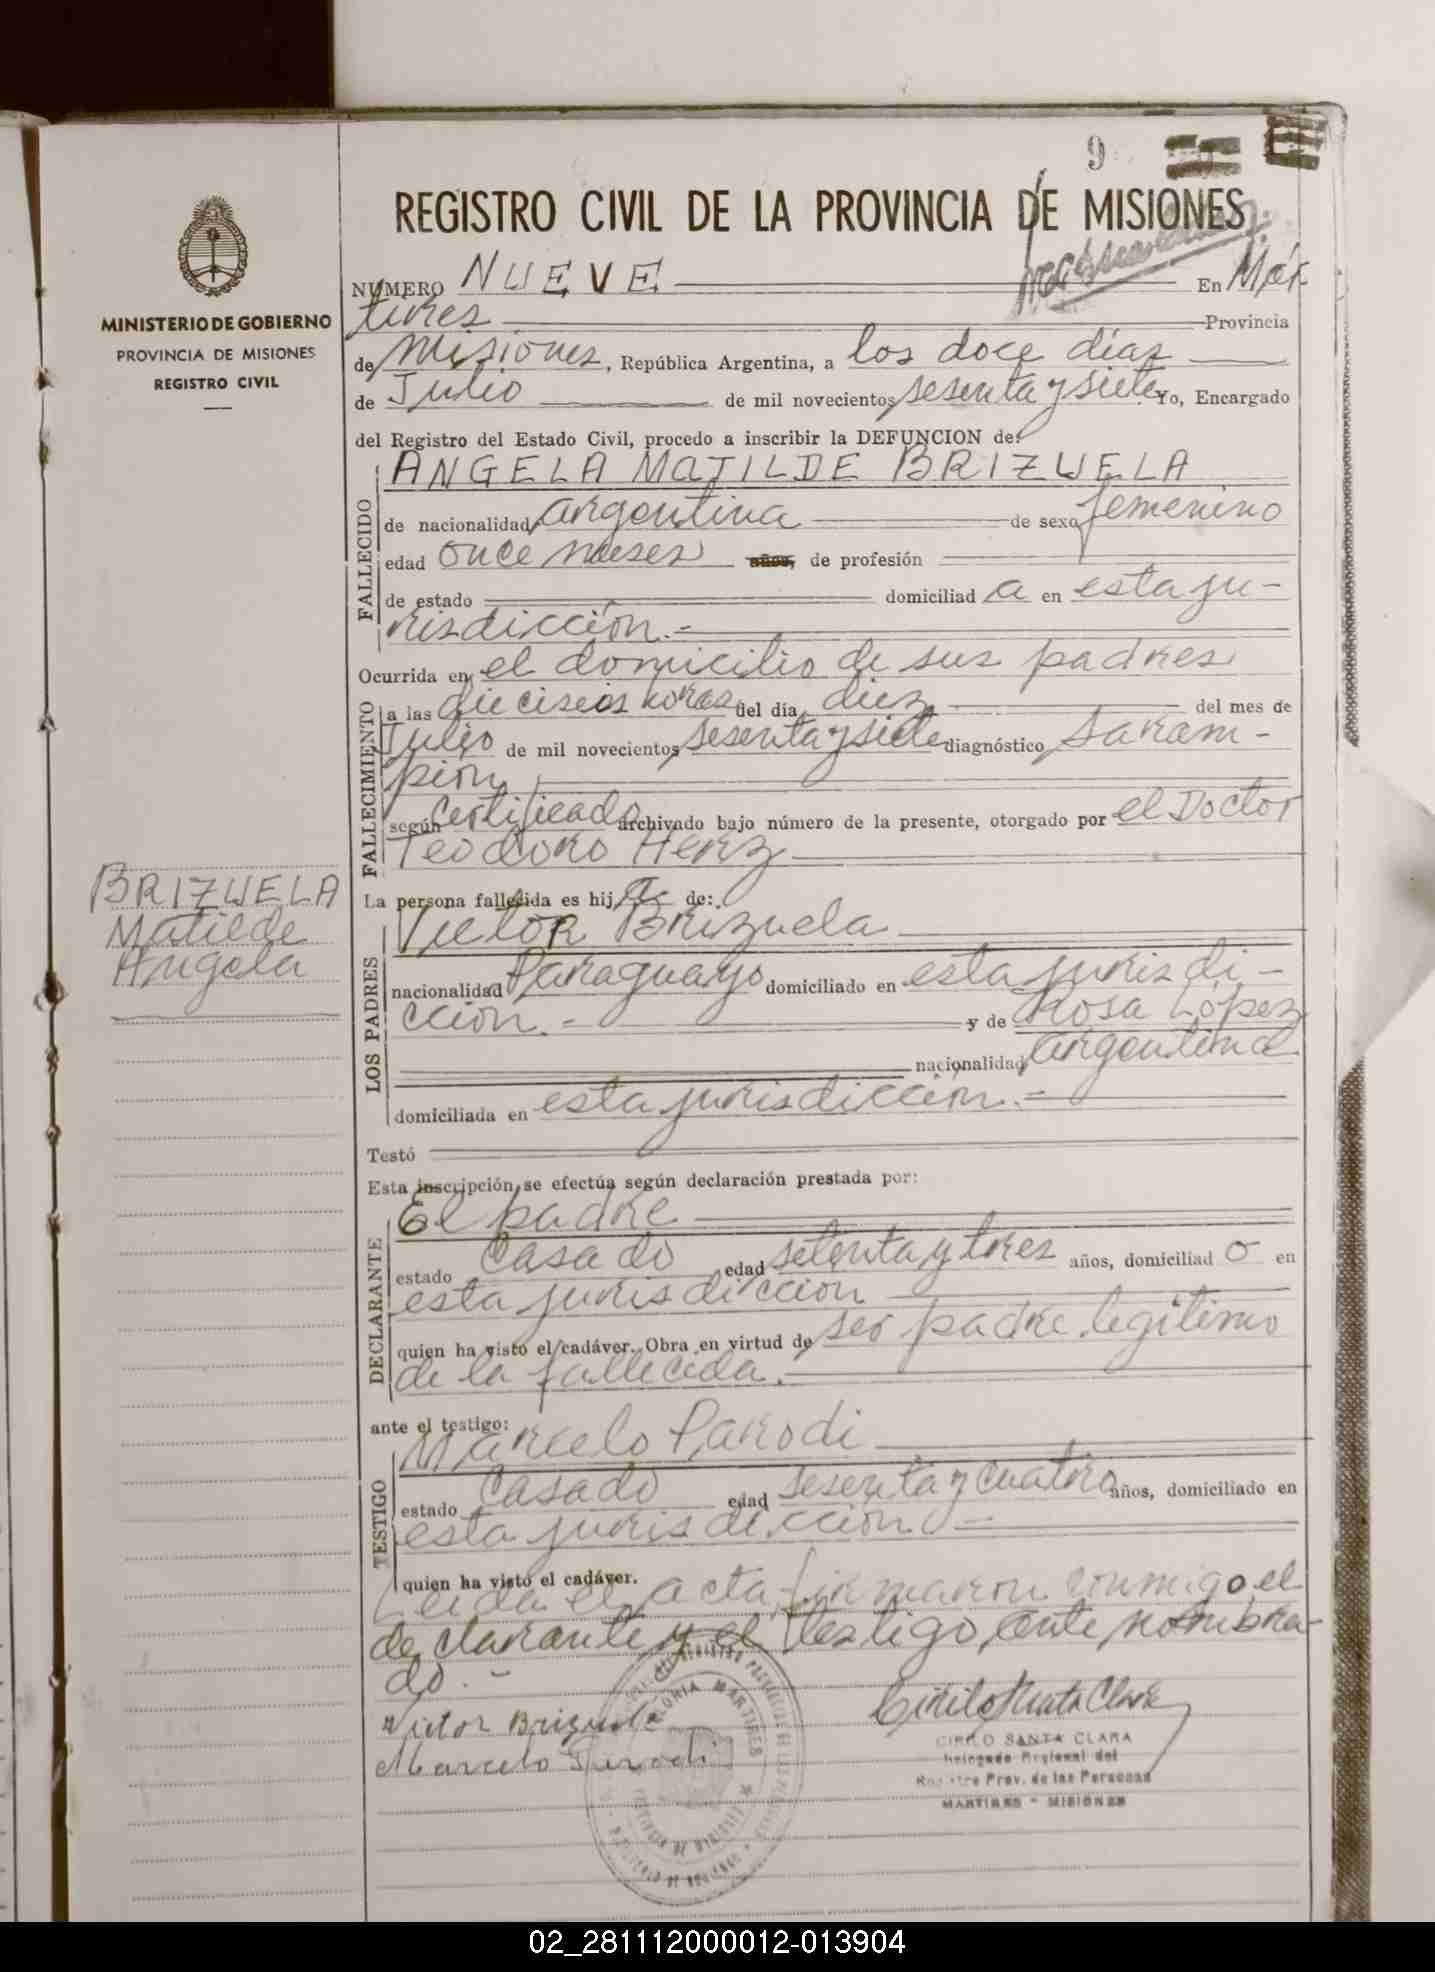 9
REGISTRO CIVIL DE LA PROVINCIA DE MISIONES
MINISTERIO DE GOBIERNO
PROVINCIA DE MISIONES
REGISTRO CIVIL
NUMERO NUEVE En Már
tires Provincia
de Misiones, República Argentina, a los doce días
de Julio de mil novecientos sesenta y siete Yo, Encargado
del Registro del Estado Civil, procedo a inscribir la DEFUNCION de:
FALLECIDO
ANGELA MATILDE BRIZUELA
de nacionalidad argentina de sexo femenino
edad once meses años, de profesión
de estado domiciliad a en esta ju-
risdicción.-
Ocurrida en el domicilio de sus padres
FALLECIMIENTO
a las dieciseos horas del día diez del mes de
Julio de mil novecientos sesenta y siete diagnóstico Saram-
pión
según Certificado archivado bajo número de la presente, otorgado por el Doctor
Teodoro Herz
BRIZUELA
Matilde
Angela
La persona fallecida es hij a de:
LOS PADRES
Victor Brizuela
nacionalidad Paraguayo domiciliado en esta jurisdi-
cción.- y de Rosa López
nacionalidad argentina
domiciliada en esta jurisdicción.-
Testó
Esta inscripción se efectúa según declaración prestada por:
DECLARANTE
El padre
estado Casado edad setenta y tres años, domiciliad o en
esta jurisdicción
quien ha visto el cadáver. Obra en virtud de ser padre legítimo
de la fallecida.-
ante el testigo:
TESTIGO
Marcelo Parodi
estado Casado edad sesenta y cuatro años, domiciliado en
esta jurisdicción -
quien ha visto el cadáver.
Leida el acta, firmaron conmigo el
declarante y el testigo ante nombra-
do.-
Victor Brizuela
Marcelo Parodi
Cirilo Santa Clara
CIRILO SANTA CLARA
Delegado Regional del
Registro Prov. de las Personas
MARTIRES - MISIONES
02_281112000012-013904